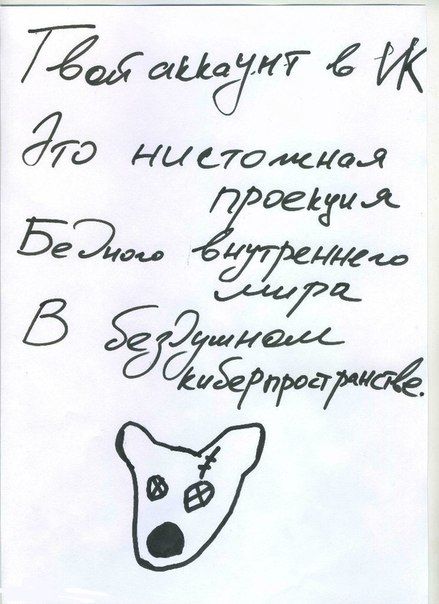 Твой аккаунт в VK
Это нистожная
проекция
Бедного внутреннего
мира
В бездушном
киберпространстве.